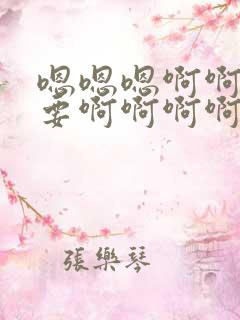 嗯嗯嗯啊啊
要啊啊啊啊
張樂琴